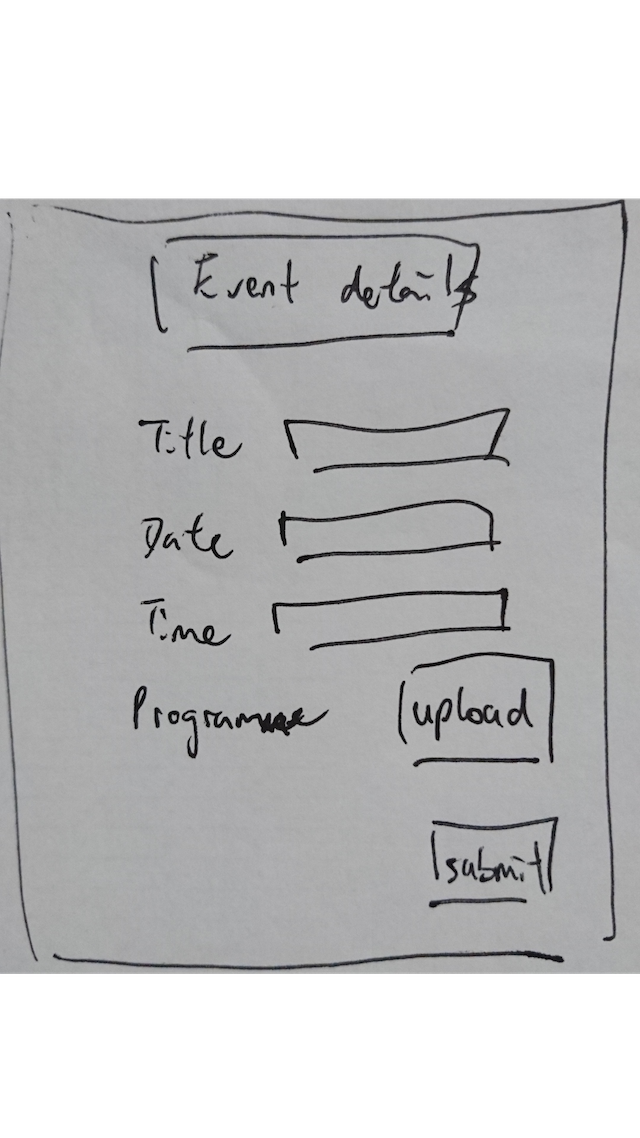 Event details
Title
Date
Time
Programme
upload
submit